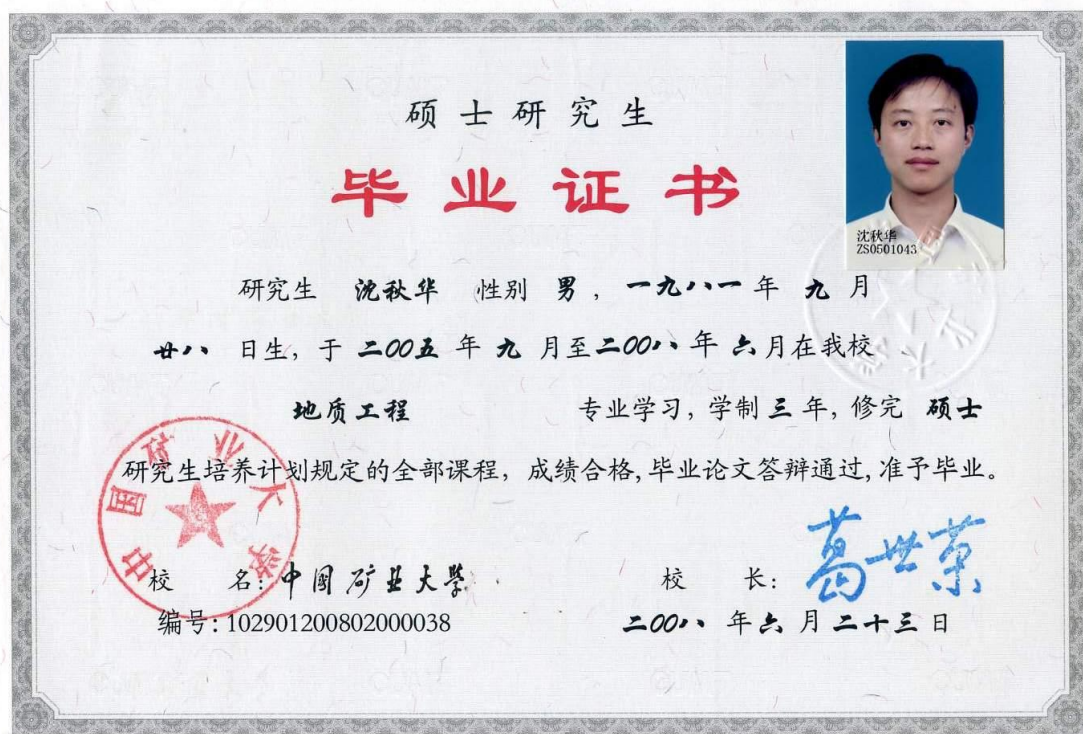 硕士研究生
毕业证书
沈秋华
ZS0501043
研究生 沈秋华 性别 男，一九八一年 九 月
廿八 日生，于 二00五 年 九 月至二00八 年 六月在我校
地质工程 专业学习，学制 三 年，修完 硕士
研究生培养计划规定的全部课程，成绩合格，毕业论文答辩通过，准予毕业。
中国矿业大学
校 名：中国矿业大学 校 长：葛世荣
编号：102901200802000038 二00八 年六 月二十三日